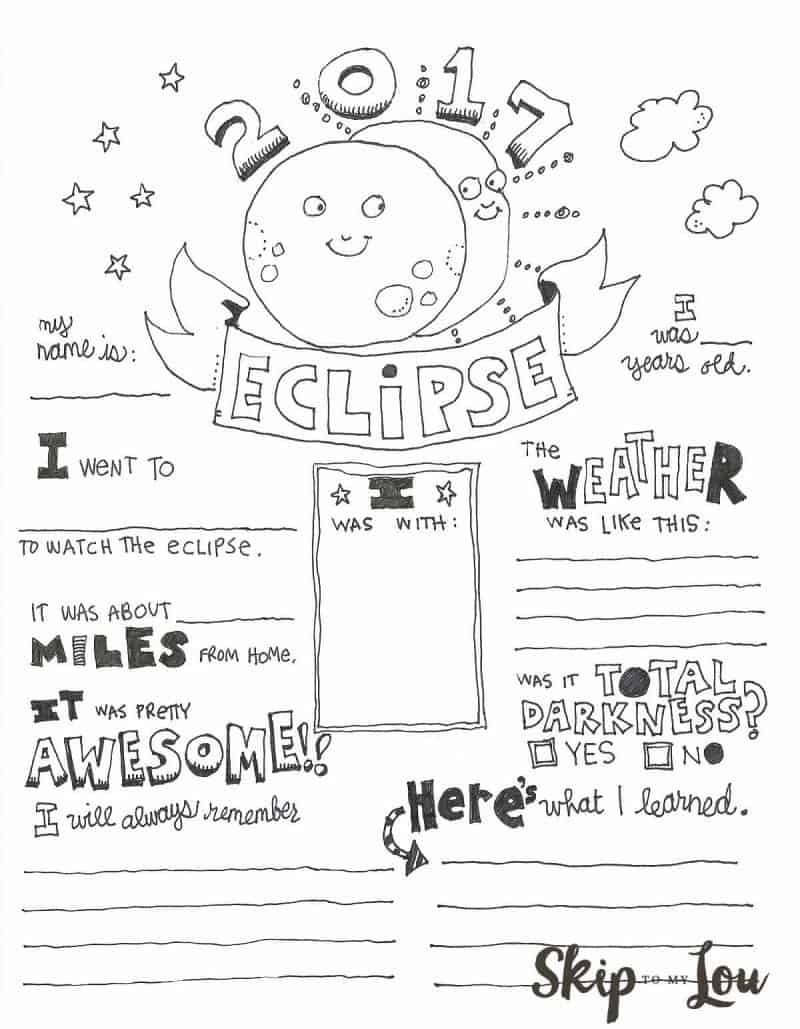 2017
ECLIPSE
my
name is:
I
was
years old.
I WENT TO
TO WATCH THE ECLIPSE.
I
WAS WITH:
THE
WEATHER
WAS LIKE THIS:
IT WAS ABOUT
MILES FROM HOME.
WAS IT TOTAL
DARKNESS?
YES NO
IT WAS PRETTY
AWESOME!!
I will always remember
Here's what I learned.
Skip TO MY Lou